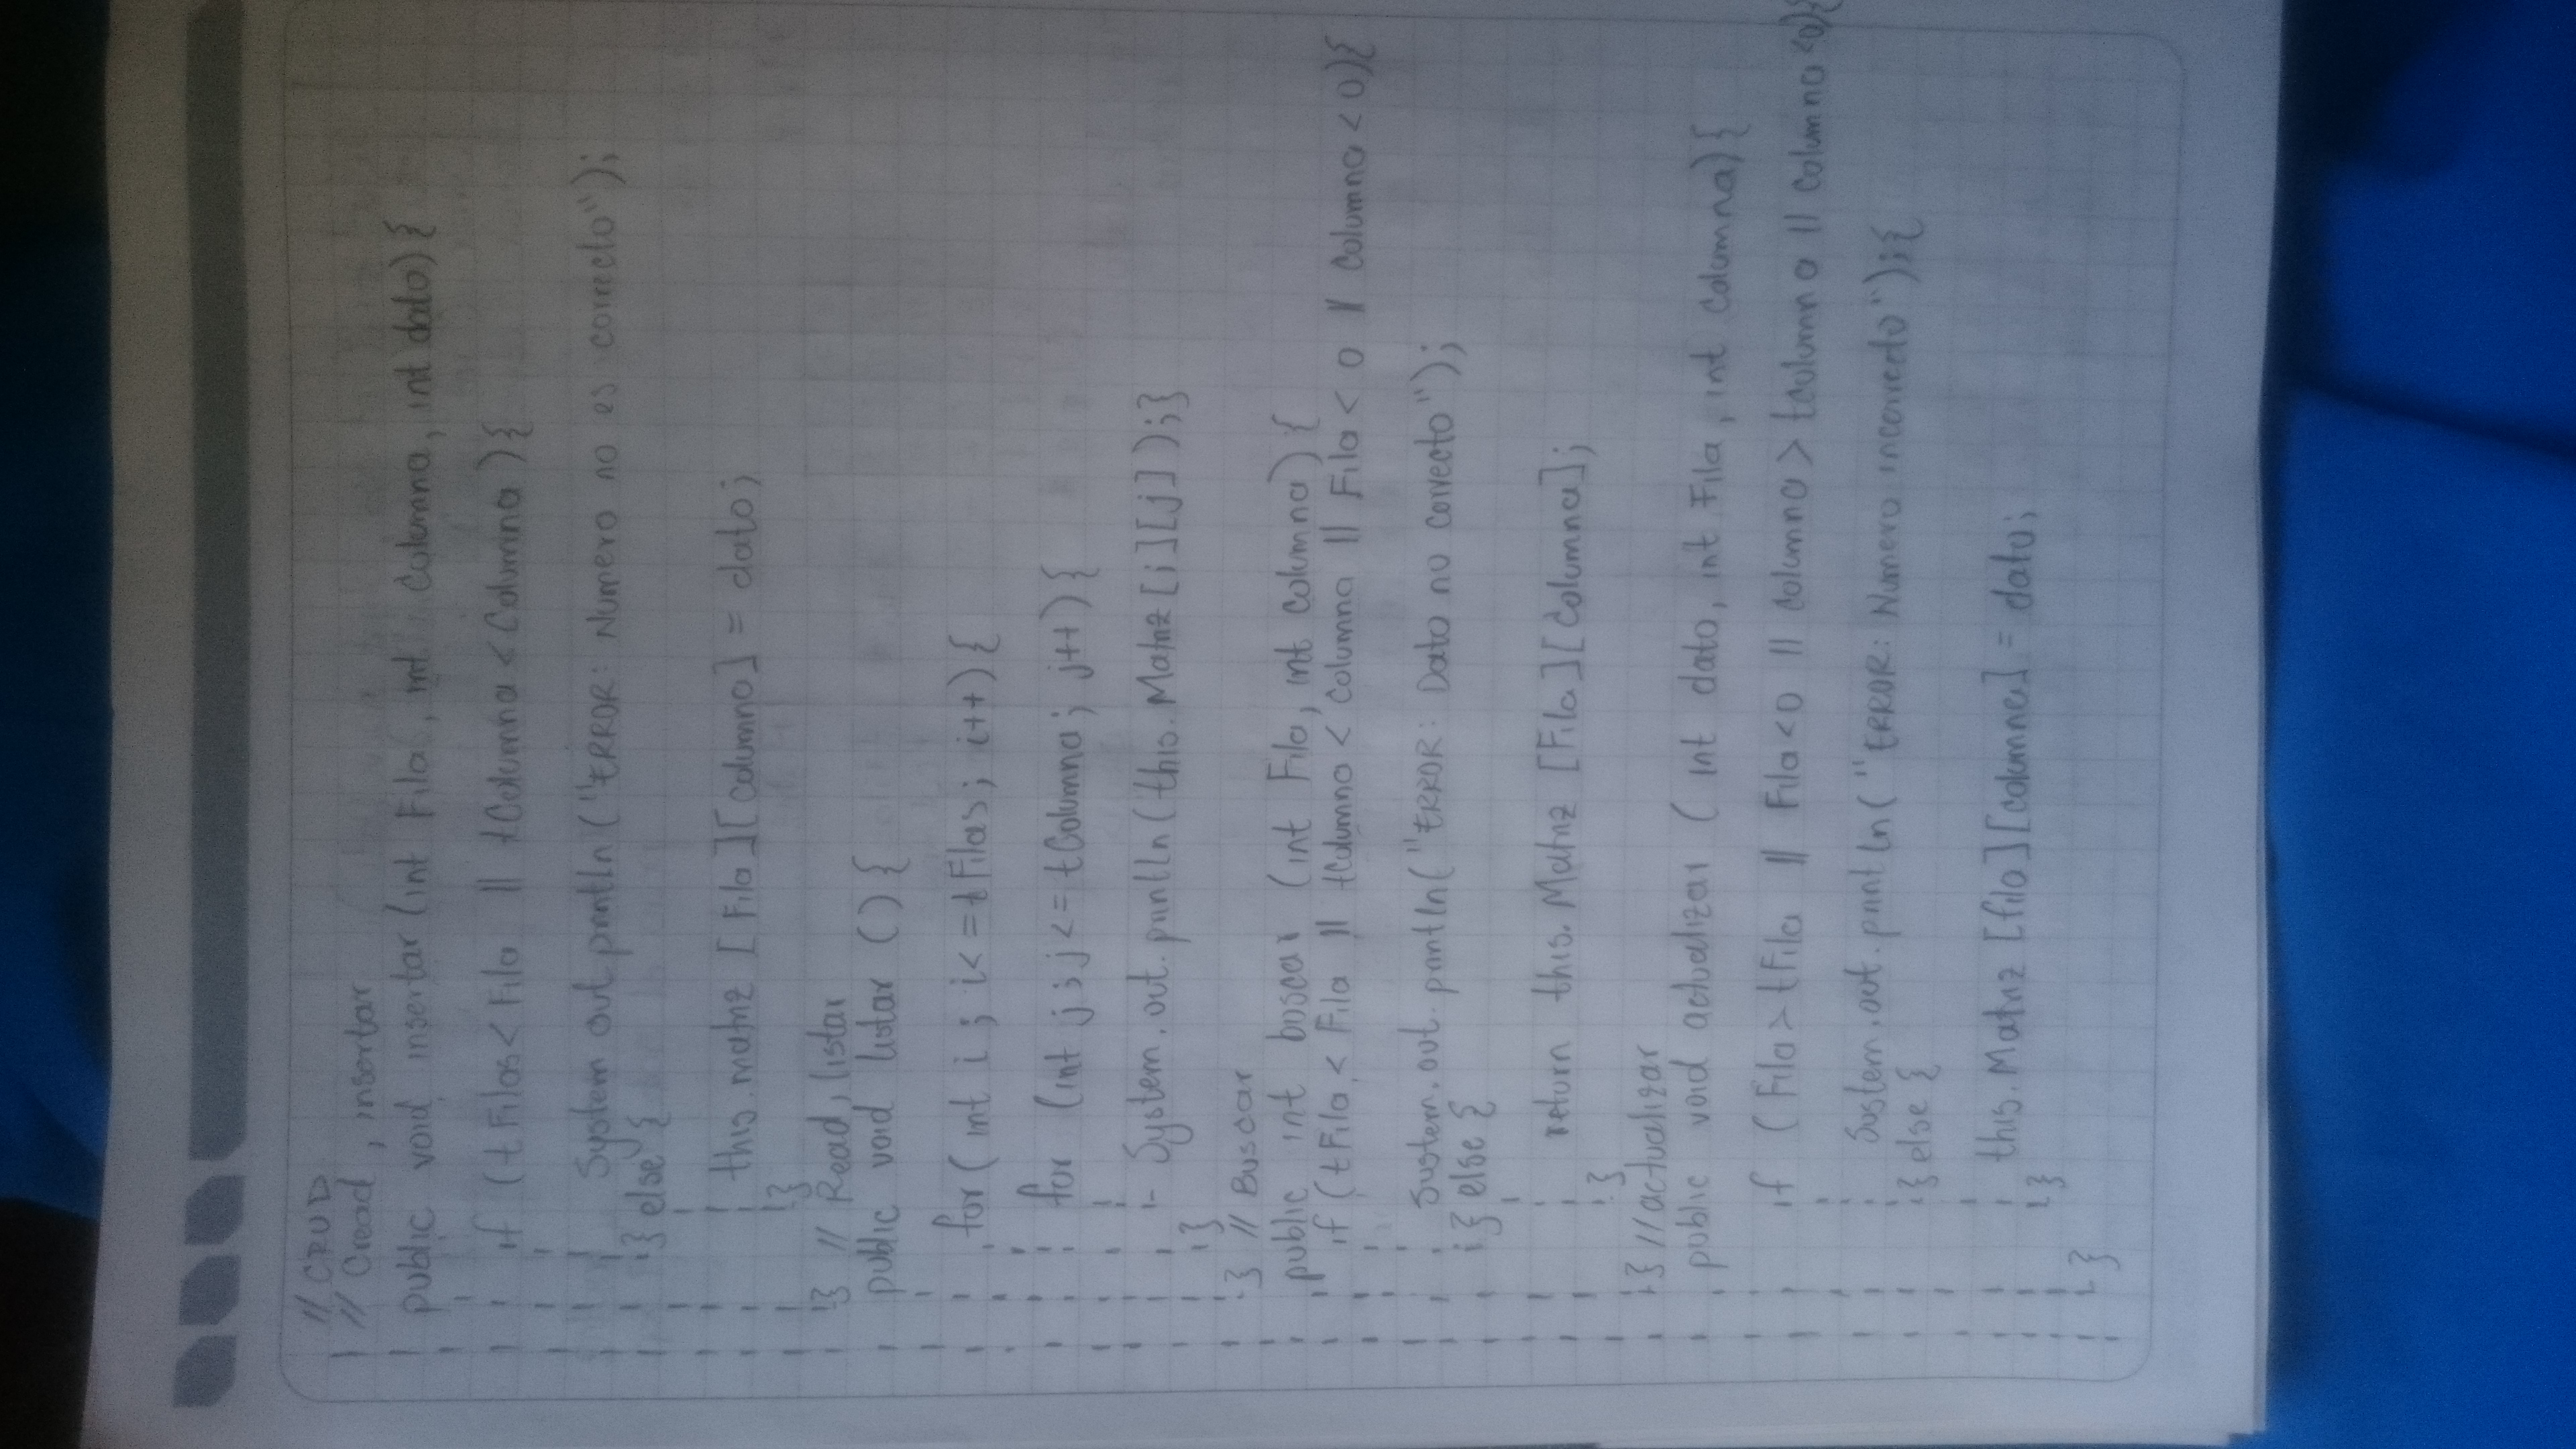 // CRUD
// Cread, insertar
public void insertar (int Fila, int Columna, int dato){
if (tFilas < Fila || tColumna < Columna ){
System out println ("ERROR: Numero no es correcto");
} else {
this.matriz [Fila][columna] = dato;
}
} // Read, listar
public void listar () {
for( int i ; i<=tFilas; i++){
for (int j ; j<= tColumna; j++){
System.out.println(this.Matriz [i][j] );}
}
} // Buscar
public int boscar (int Fila, int columna) {
if (tFila < Fila || tColumna < Columna || Fila < 0 || Columna < 0){
System.out.println("ERROR: Dato no correcto");
} else {
return this.Matriz [Fila][Columna];
}
} //actualizar
public void actualizar ( int dato, int Fila, int Columna){
if (Fila > tFila || Fila<0 || Columna > tcolumna || Columna <0){
System.out.println("ERROR: Numero incorrecto");{
} else {
this.Matriz [fila][columna] = dato;
}
}